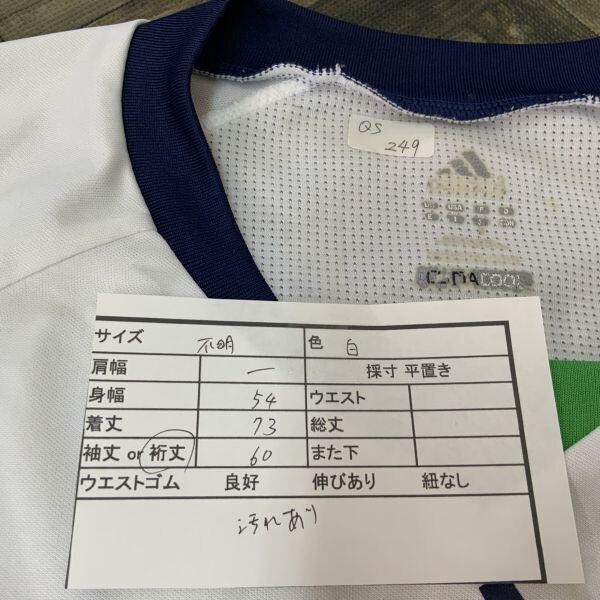 QS
249
adidas
UK USA F D
CLIMACOOL
サイズ 不明 色 白
肩幅 ー 採寸 平置き
身幅 54 ウエスト
着丈 73 総丈
袖丈 or 裄丈 60 また下
ウエストゴム 良好 伸びあり 紐なし
汚れあり